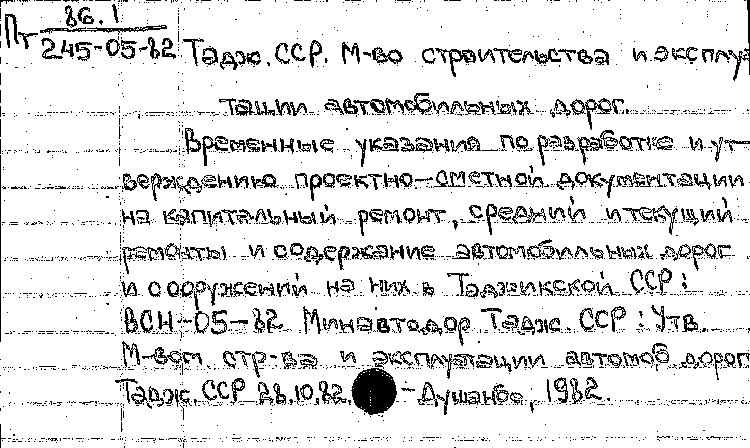 Пт 86.1
245-05-82 Тадж. ССР. М-во строительства и эксплуа
тации автомобильных дорог.
Временные указания по разработке и ут-
верждению проектно-сметной документации
на капитальный ремонт, средний и текущий
ремонты и содержание автомобильных дорог
и сооружений на них в Таджикской ССР:
ВСН-05-82 Минавтодор Тадж. ССР: Утв.
М-вом стр-ва и эксплуатации автомоб дорог
Тадж. ССР 28.10.82. - Душанбе, 1982.